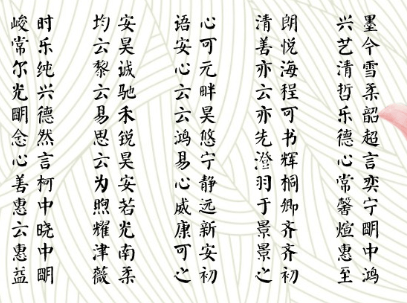 墨令雪柔韶超言奕宁明中鸿
兴艺清哲乐德心常馨煊惠至
朗悦海程可书辉桐卿齐齐初
清善亦云亦先澄羽于景景之
心可元畔昊悠宁静远新安初
语安心云云鸿易心威康可之
安昊诚驰禾锐昊安若光南柔
均云黎云易思云为煦耀津薇
时乐纯兴德然言柯中晓中明
峻常尔光明念心善惠云惠益